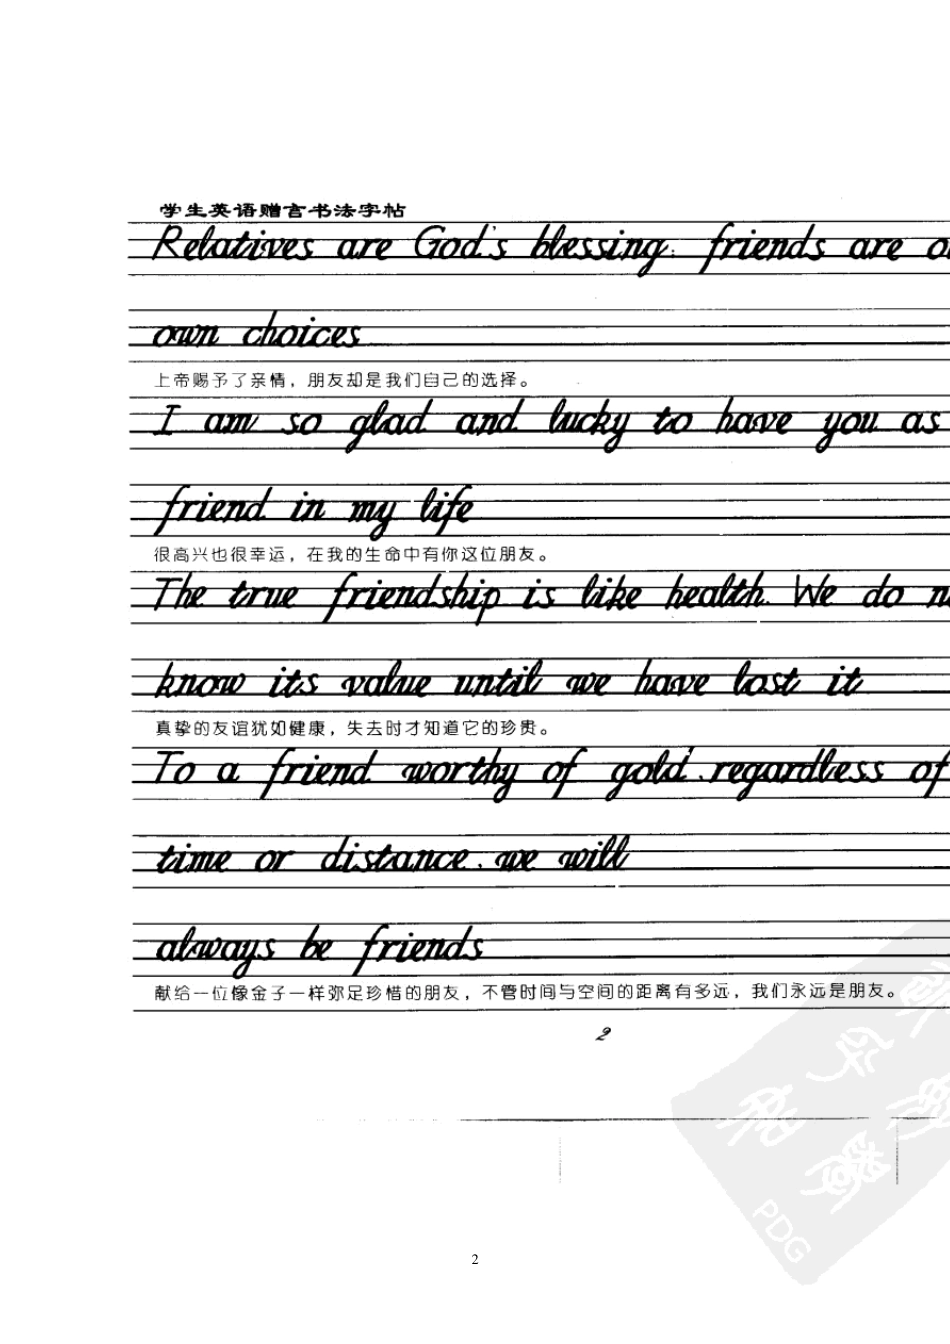 学生英语赠言书法字帖
Relatives are God's blessing; friends are
own choices
上帝赐予了亲情，朋友却是我们自己的选择。
I am so glad and lucky to have you as
friend in my life
很高兴也很幸运，在我的生命中有你这位朋友。
The true friendship is like health. We do
know its value until we have lost it
真挚的友谊犹如健康，失去时才知道它的珍贵。
To a friend worthy of gold, regardless of
time or distance, we will
always be friends
献给一位像金子一样弥足珍惜的朋友，不管时间与空间的距离有多远，我们永远是朋友。
2
PDG
2